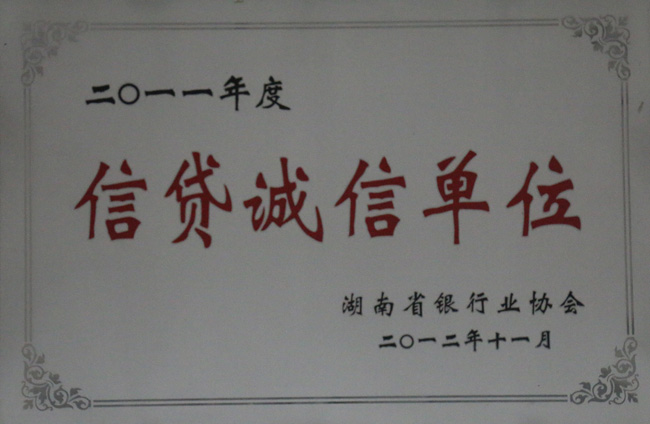 二〇一一年度
信贷诚信单位
湖南省银行业协会
二〇一二年十一月